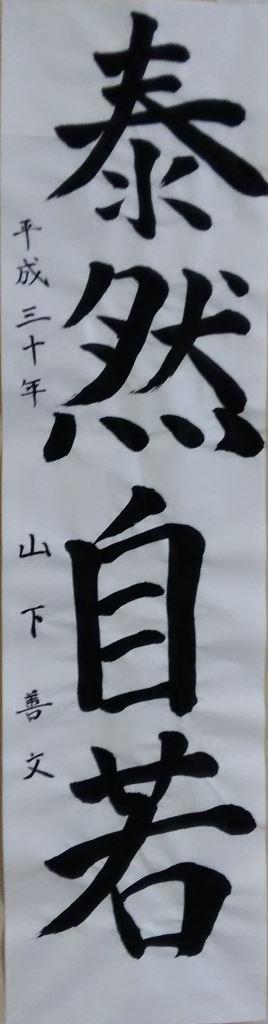 泰然自若
平成三十年
山下善文